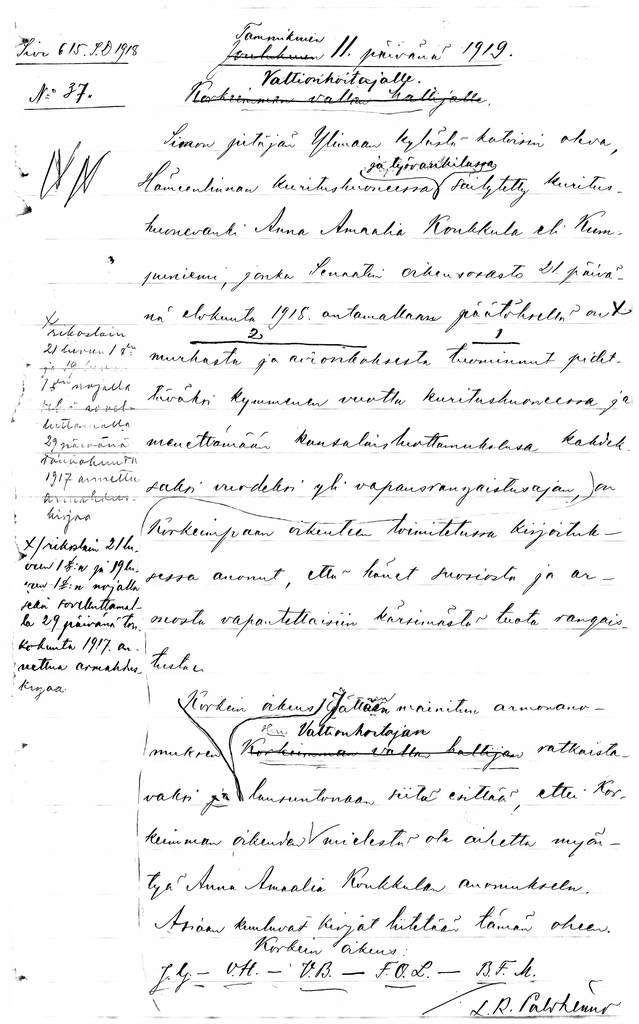 Siv. 615. S.D 1918
No 37.
Tammikuun
Joulukuun 11. päivänä 1919.
Valtionhoitajalle.
Korkeimman vallan haltijalle.
Simon pitäjän Ylimaan kylästä kotoisin oleva,
ja työvankilassa
Hämeenlinnan kuritushuoneessa säilytetty kuritus-
huonevanki Anna Amaalia Koukkula eli Kum-
puniemi, jonka Senaatin oikeusosasto 21. päivä-
nä elokuuta 1918. antamallaan päätöksellä on X
2 1
murhasta ja aviorikoksesta tuominnut pidet-
täväksi kymmenen vuotta kuritushuoneessa ja
menettämään kansalaisluottamuksensa kahdek-
saksi vuodeksi yli vapausrangaistusajan, on
Korkeimpaan oikeuteen toimitetussa kirjoituk-
sessa anonut, että hänet suosiosta ja ar-
mosta vapautettaisiin kärsimästä tuota rangais-
tusta.
X
rikoslain
21 luvun 1 §:n
ja 19 luvun
1 §:n nojalla
sovel-
luttamalla
29 päivänä
toukokuuta
1917 annettu
armahdus-
kirjaa
X/ rikoslain 21 lu-
vun 1 §:n ja 19 lu-
vun 1 §:n nojalla
sekä sovelluttamal-
la 29 päivänä tou-
kokuuta 1917. an-
nettua armahdus-
kirjaa
Korkein oikeus Jättäen mainitun armonano-
Valtionhoitajan
muksen Korkeimman vallan haltijan ratkaista-
vaksi ja lausuntonaan siitä esittää, ettei Kor-
keimman oikeuden mielestä ole aihetta myön-
tyä Anna Amaalia Koukkulan anomukseen.
Asiaan kuuluvat kirjat liitetään tämän oheen.
Korkein oikeus:
J. G. — V.H. — V.B. — F.O.L. — B.F.M.